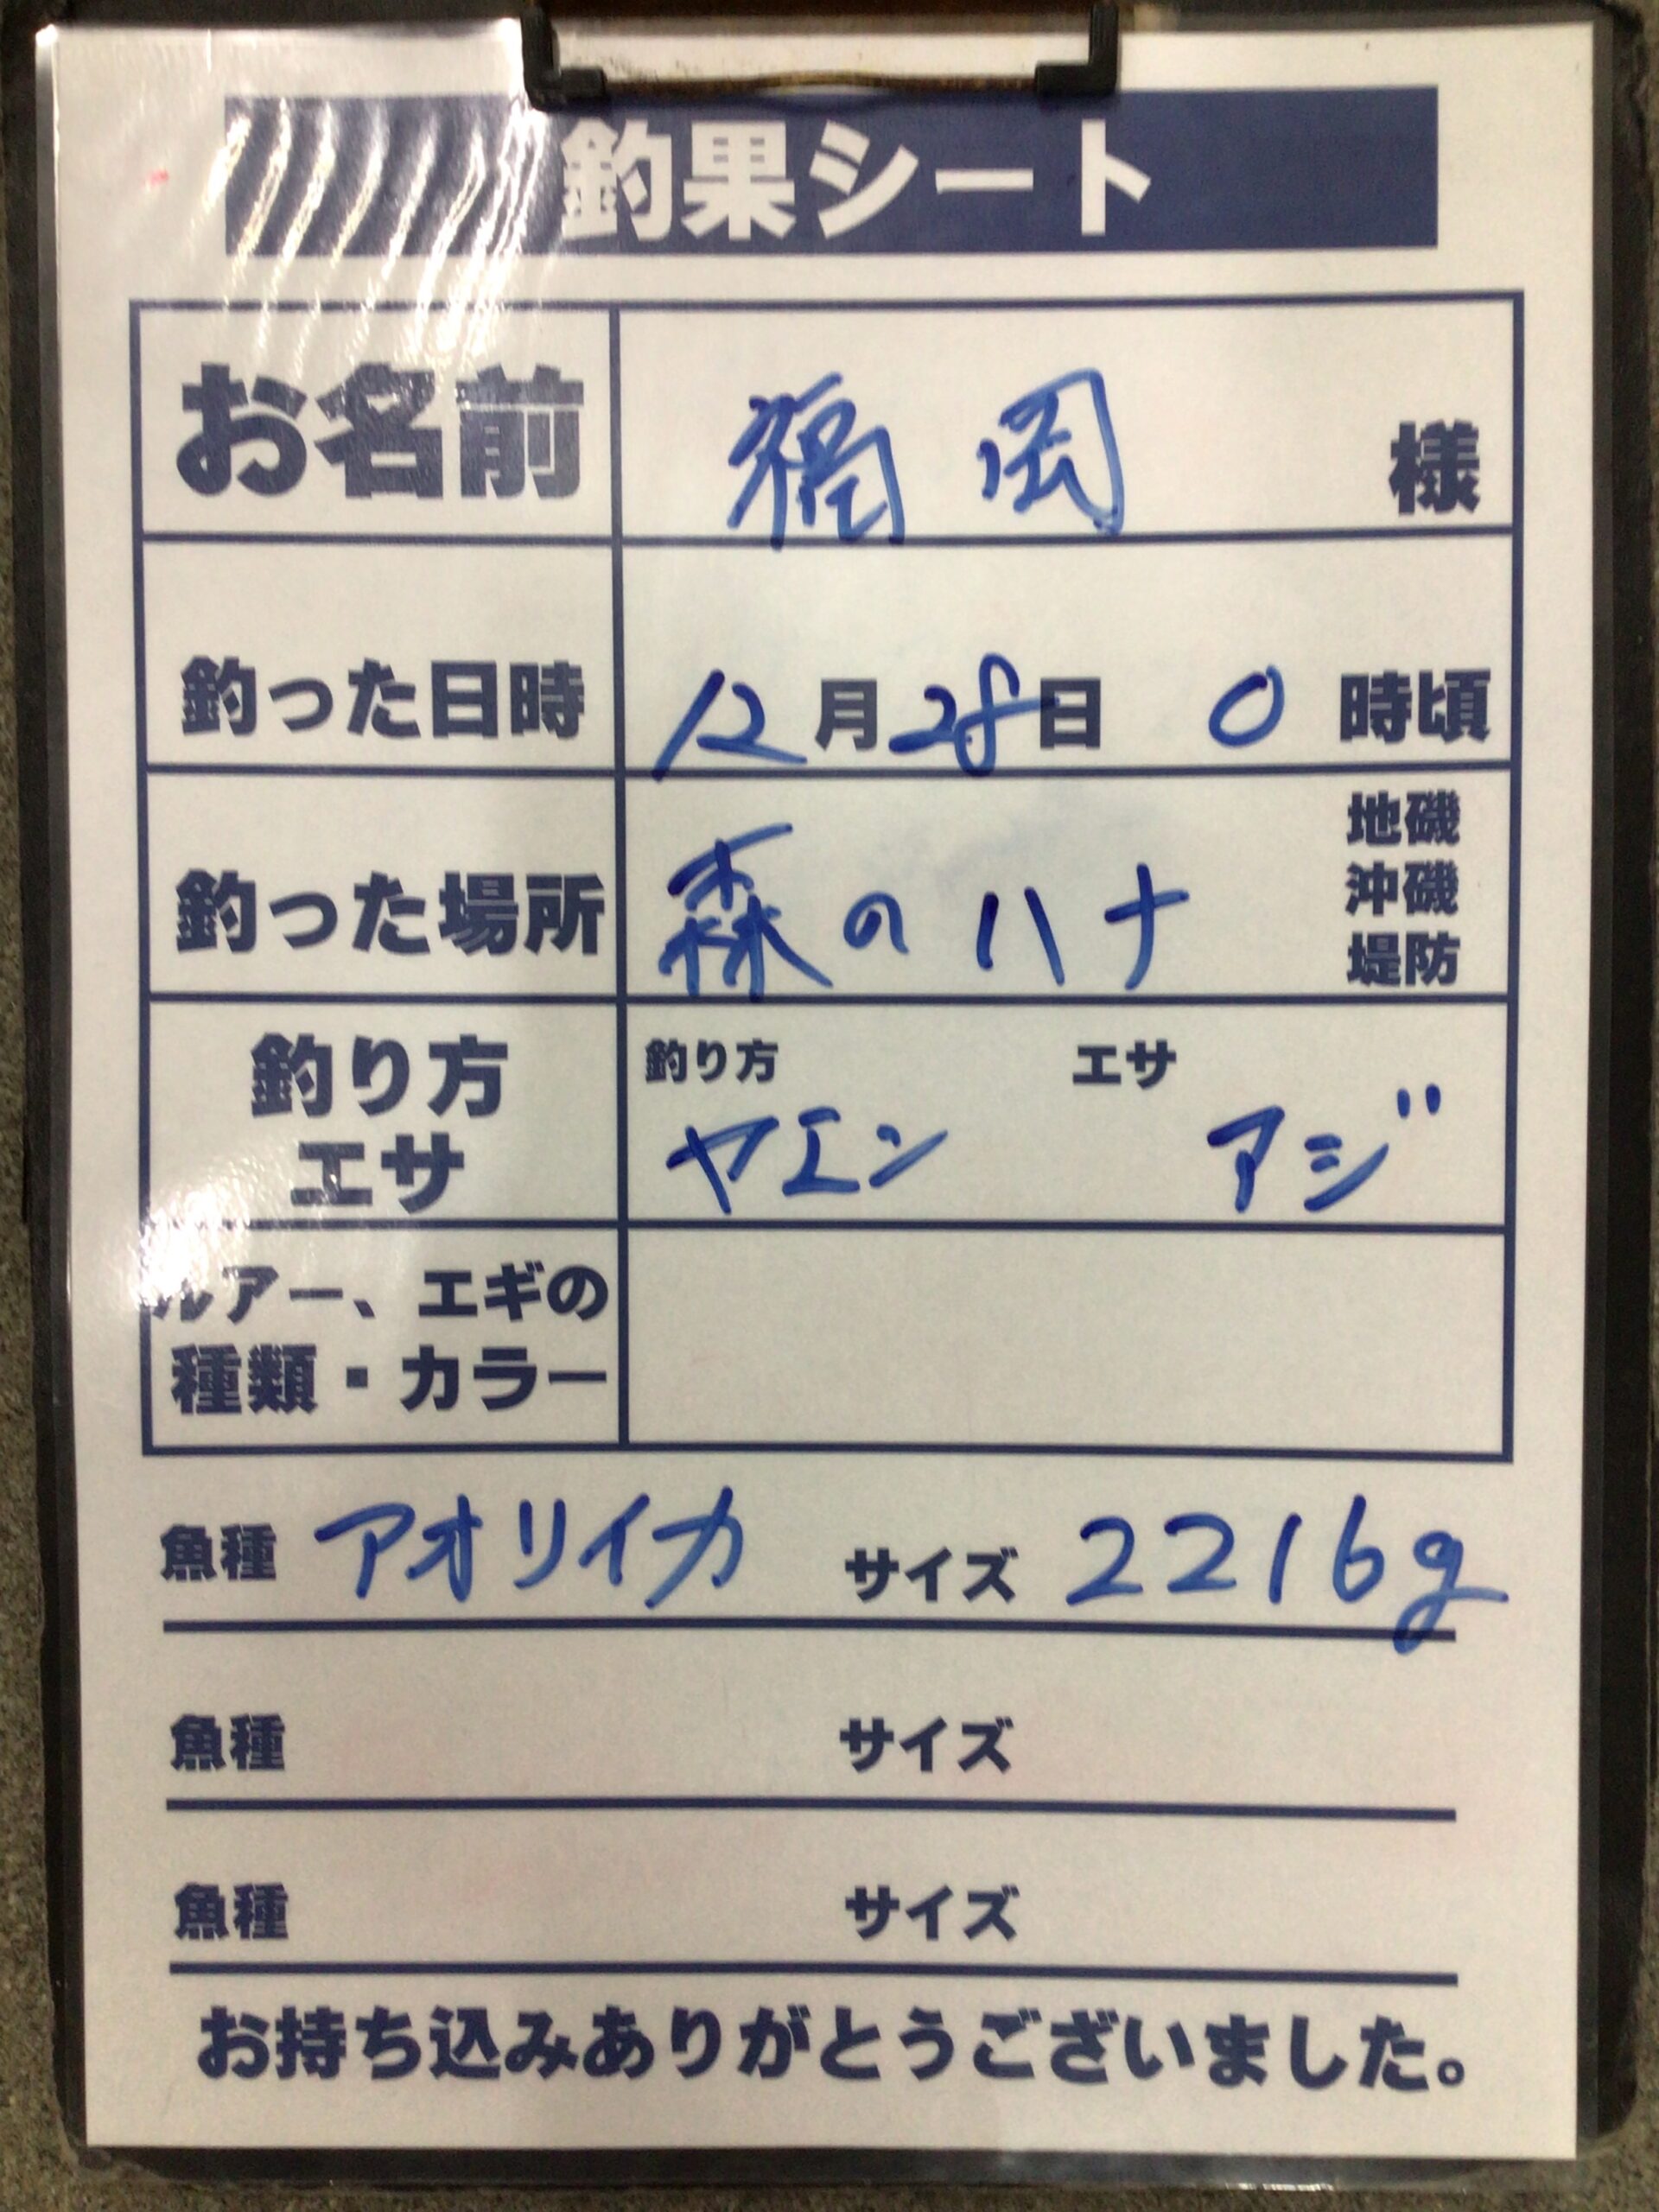 釣果シート
お名前 福岡 様
釣った日時 12月28日 0時頃
釣った場所 森のハナ 地磯
沖磯
堤防
釣り方 エサ
釣り方 エサ
ヤエン アジ
ルアー、エギの
種類・カラー
魚種 アオリイカ サイズ 2216g
魚種 サイズ
魚種 サイズ
お持ち込みありがとうございました。